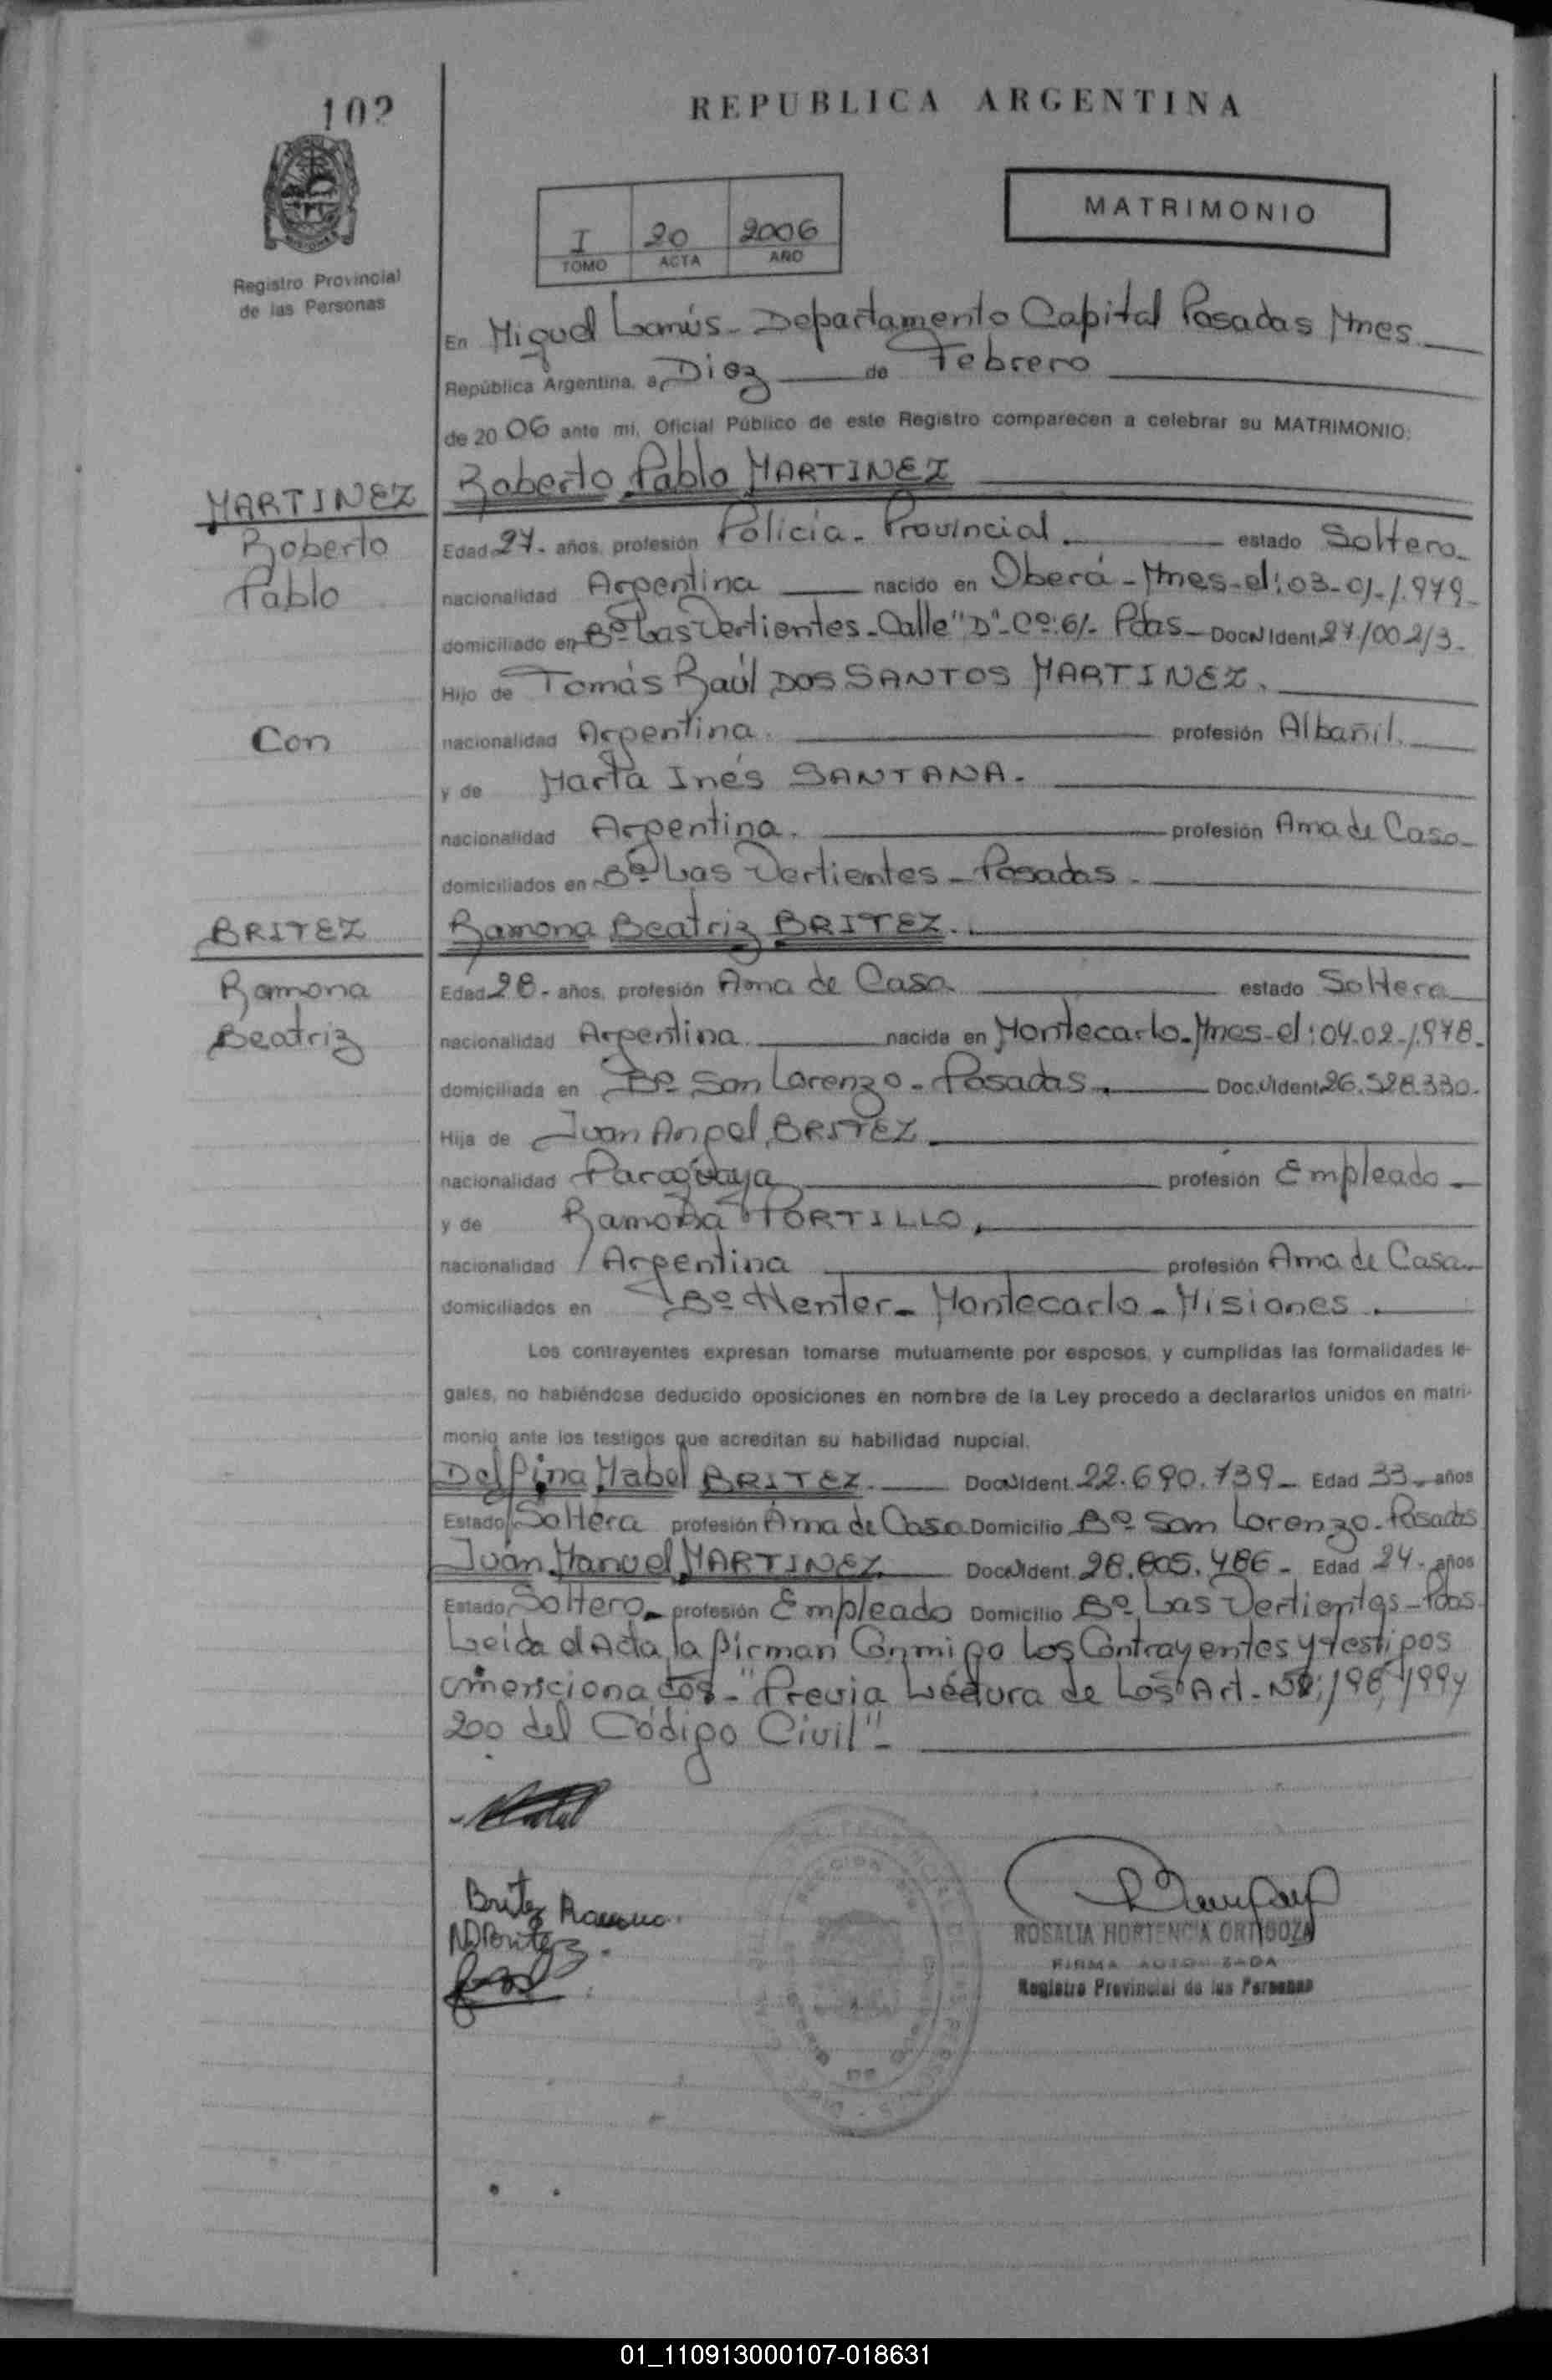 102
REPUBLICA ARGENTINA
MATRIMONIO
I 20 2006
TOMO ACTA AÑO
Registro Provincial
de las Personas
En Miguel Lanús - Departamento Capital Posadas Mnes.
República Argentina, a Diez de Febrero
de 2006 ante mi, Oficial Público de este Registro comparecen a celebrar su MATRIMONIO:
MARTINEZ
Roberto
Pablo
Con
BRITEZ
Ramona
Beatriz
Roberto Pablo MARTINEZ
Edad 27 - años, profesión Policía - Provincial estado Soltero -
nacionalidad Argentina nacido en Oberá - Mnes - el: 03-01-1.979 -
domiciliado en Bº Las Vertientes - Calle "D" - Cº: 61 - Pdas - Doc. N Ident. 27.100.213 -
Hijo de Tomás Raúl DOS SANTOS MARTINEZ.
nacionalidad Argentina. profesión Albañil.
y de Marta Inés SANTANA -
nacionalidad Argentina. profesión Ama de Casa -
domiciliados en Bº Las Vertientes - Posadas -
Ramona Beatriz BRITEZ.
Edad 28 - años, profesión Ama de Casa. estado Soltera
nacionalidad Argentina nacida en Montecarlo - Mnes - el: 04-02-1.978 -
domiciliada en Bº San Lorenzo - Posadas. Doc. N Ident. 26.528.330 -
Hija de Juan Angel BRITEZ
nacionalidad Paraguaya profesión Empleado -
y de Ramona PORTILLO.
nacionalidad Argentina profesión Ama de Casa.
domiciliados en Bº Henter - Montecarlo - Misiones.
Los contrayentes expresan tomarse mutuamente por esposos, y cumplidas las formalidades le-
gales, no habiéndose deducido oposiciones en nombre de la Ley procedo a declararlos unidos en matri-
monio ante los testigos que acreditan su habilidad nupcial.
Delfina Mabel BRITEZ. Doc. N Ident. 22.690.739 - Edad 33 - años
Estado Soltera profesión Ama de Casa Domicilio Bº San Lorenzo - Posadas
Juan Manuel MARTINEZ Doc. N Ident. 28.805.486 - Edad 24 - años
Estado Soltero - profesión Empleado Domicilio Bº Las Vertientes - Pdas.
Leida el Acta, la firman Conmigo los Contrayentes y testigos
mencionados - "Previa Lectura de Los Art - Nº: 198, 199 y
200 del Código Civil" -
Britez Ramona.
ROSALIA HORTENCIA ORTIGOZA
FIRMA AUTORIZADA
Registro Provincial de las Personas
01_110913000107-018631